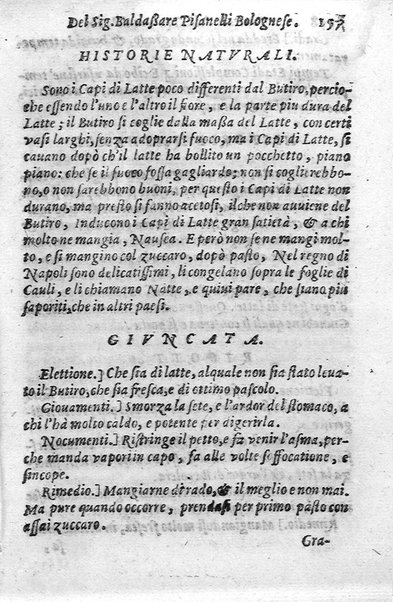 Del Sig. Baldaßare Pisanelli Bolognese. 157
HISTORIE NATVRALI.
Sono i Capi di Latte poco differenti dal Butiro, percio-
che essendo l'uno e l'altro il fiore, e la parte piu dura del
Latte; il Butiro si coglie dalla maßa del Latte, con certi
vasi larghi, senza adoprarsi fuoco, ma i Capi di Latte, si
cauano dopò ch'il latte ha bollito un pocchetto, piano
piano: che se il fuoco fossa gagliardo; non si coglierebbo-
no, o non sarebbono buoni, per questo i Capi di Latte non
durano, ma presto si fanno acetosi, ilche non auuiene del
Butiro, Inducono i Capi di Latte gran satietà, & a chi
molto ne mangia, Nausea. E però non se ne mangi mol-
to, e si mangino col zuccaro, dopò pasto, Nel regno di
Napoli sono delicatissimi, li congelano sopra le foglie di
Cauli, e li chiamano Natte, e quiui pare, che siano piu
saporiti, che in altri paesi.
GIVNCATA.
Elettione.] Che sia di latte, alquale non sia stato leua-
to il Butiro, che sia fresca, e di ottimo pascolo.
Giouamenti.] Smorza la sete, e l'ardor del stomaco, a
chi l'hà molto caldo, e potente per digerirla.
Nocumenti.] Ristringe il petto, e fà venir l'asma, per-
che manda vapori in capo, fa alle volte soffocatione, e
sincope.
Rimedio.] Mangiarne di rado, & il meglio e non mai.
Ma pure quando occorre, prendasi per primo pasto con
assai zuccaro.
Gra-